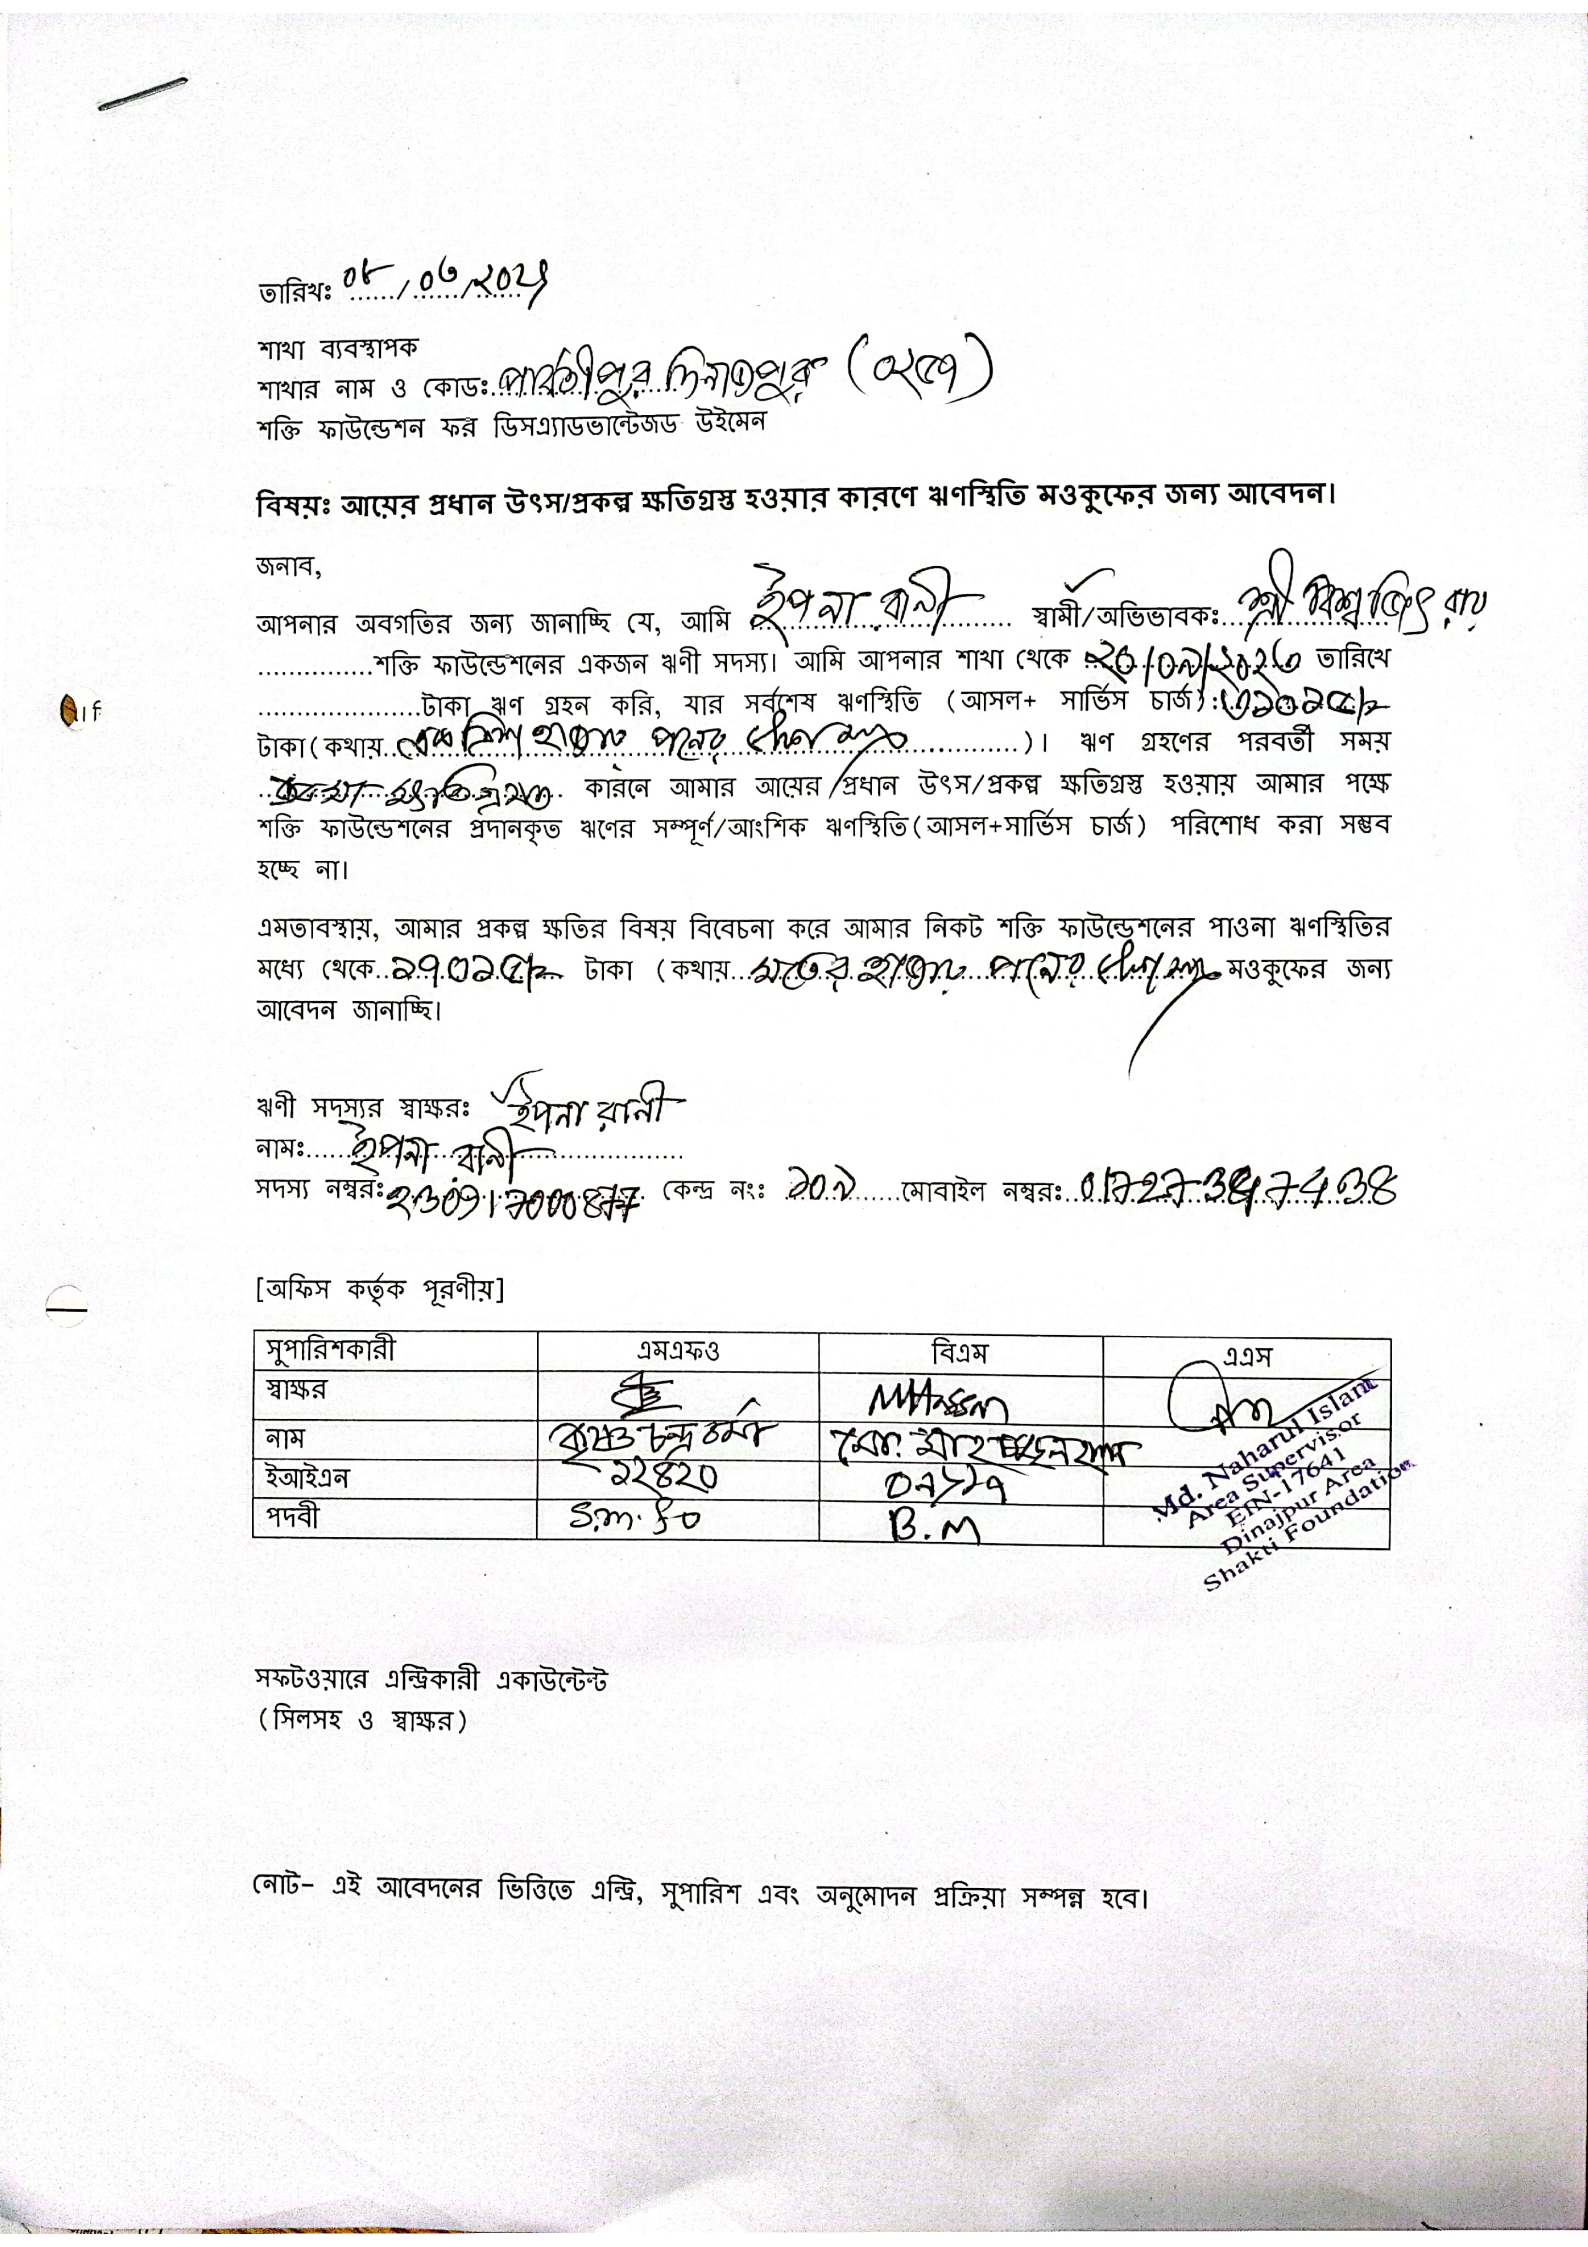 তারিখঃ ০৮/০৬/২০২৫
শাখা ব্যবস্থাপক
শাখার নাম ও কোডঃ পার্বতীপুর দিনাজপুর (০২৫৭)
শক্তি ফাউন্ডেশন ফর ডিসএ্যাডভান্টেজড উইমেন
বিষয়ঃ আয়ের প্রধান উৎস/প্রকল্প ক্ষতিগ্রস্ত হওয়ার কারণে ঋণস্থিতি মওকুফের জন্য আবেদন।
জনাব,
আপনার অবগতির জন্য জানাচ্ছি যে, আমি ইপনা রানী স্বামী/অভিভাবকঃ শ্রী বিশ্বজিৎ রায়
শক্তি ফাউন্ডেশনের একজন ঋণী সদস্য। আমি আপনার শাখা থেকে তারিখে
টাকা ঋণ গ্রহন করি, যার সর্বশেষ ঋণস্থিতি (আসল+ সার্ভিস চার্জ): ৩১০১৫/=
টাকা(কথায় একত্রিশ হাজার পনের টাকা মাত্র)। ঋণ গ্রহণের পরবর্তী সময়
কারনে আমার আয়ের প্রধান উৎস/প্রকল্প ক্ষতিগ্রস্ত হওয়ায় আমার পক্ষে
শক্তি ফাউন্ডেশনের প্রদানকৃত ঋণের সম্পূর্ণ/আংশিক ঋণস্থিতি(আসল+সার্ভিস চার্জ) পরিশোধ করা সম্ভব
হচ্ছে না।
এমতাবস্থায়, আমার প্রকল্প ক্ষতির বিষয় বিবেচনা করে আমার নিকট শক্তি ফাউন্ডেশনের পাওনা ঋণস্থিতির
মধ্যে থেকে ১৭০১৫/= টাকা (কথায় সতের হাজার পনের টাকা মাত্র মওকুফের জন্য
আবেদন জানাচ্ছি।
ঋণী সদস্যর স্বাক্ষরঃ ইপনা রানী
নামঃ ইপনা রানী
সদস্য নম্বরঃ কেন্দ্র নংঃ ১০৯ মোবাইল নম্বরঃ
[অফিস কর্তৃক পূরণীয়]
সুপারিশকারী এমএফও বিএম এএস
স্বাক্ষর
নাম কৃষ্ণ চন্দ্র বর্মা মোঃ
ইআইএন ১২৪২০
পদবী S.m.fo B.M
Md. Naharul Islam
Area Supervisor
EIN-17641
Dinajpur Area
Shakti Foundation
সফটওয়ারে এন্ট্রিকারী একাউন্টেন্ট
(সিলসহ ও স্বাক্ষর)
নোট- এই আবেদনের ভিত্তিতে এন্ট্রি, সুপারিশ এবং অনুমোদন প্রক্রিয়া সম্পন্ন হবে।